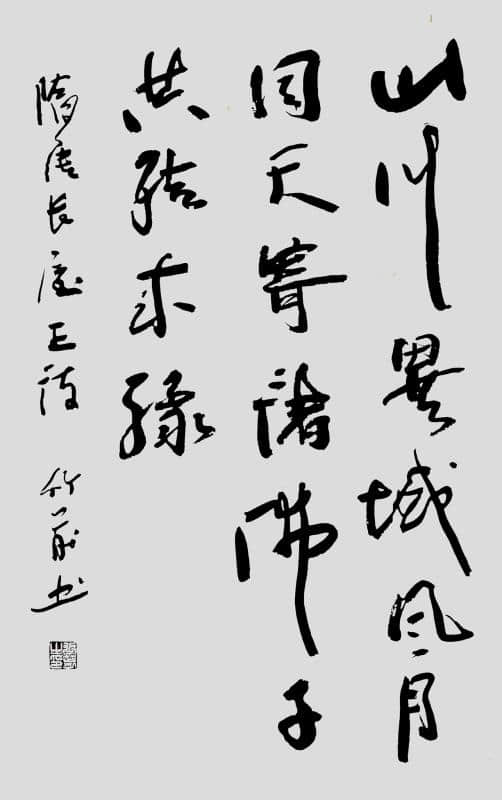 山川異域風月
同天寄諸佛子
共結來緣
隋唐長屋王詩 竹書